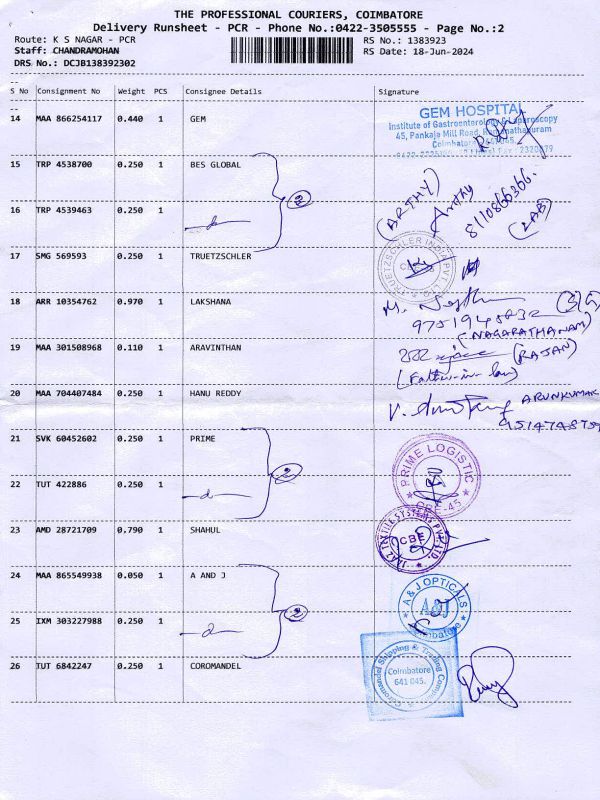 THE PROFESSIONAL COURIERS, COIMBATORE
Delivery Runsheet - PCR - Phone No.:0422-3505555 - Page No.:2
Route: K S NAGAR - PCR RS No.: 1383923
Staff: CHANDRAMOHAN RS Date: 18-Jun-2024
DRS No.: DCJB138392302
S No Consignment No Weight PCS Consignee Details Signature
14 MAA 866254117 0.440 1 GEM
GEM HOSPITAL
Institute of Gastroenterology & Laparoscopy
45, Pankaja Mill Road, Ramanathapuram
Coimbatore
15 TRP 4538700 0.250 1 BES GLOBAL
2
(ARTHY) Arthy 8110866366.
(LAB)
16 TRP 4539463 0.250 1
17 SMG 569593 0.250 1 TRUETZSCHLER
TRUETZSCHLER INDIA PVT LTD
18 ARR 10354762 0.970 1 LAKSHANA
(NAGARATHANAM)
19 MAA 301508968 0.110 1 ARAVINTHAN
(RAJAN)
(Father-in-law)
20 MAA 704407484 0.250 1 HANU REDDY
ARUNKUMAR
21 SVK 60452602 0.250 1 PRIME
2
PRIME LOGISTIC
CBE-45
22 TUT 422886 0.250 1
23 AMD 28721709 0.790 1 SHAHUL
TEXTILE SYSTEMS PVT. LTD.
CBE
24 MAA 865549938 0.050 1 A AND J
2
A & J OPTICALS
A&J
Coimbatore
25 IXM 303227988 0.250 1
26 TUT 6842247 0.250 1 COROMANDEL
Coromandel Shipping & Trading Company
Coimbatore
641 045.